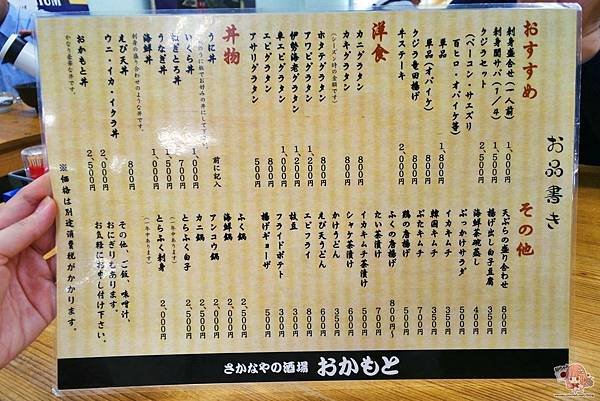 お品書き
おすすめ
刺身盛合せ(一人前) 1,000円
刺身関サバ(1/4) 1,500円
クジラセット 2,500円
(ベーコン・サエズリ
百ヒロ・オバイケ等)
単品 1,800円
単品(オバイケ) 800円
クジラ竜田揚げ 800円
牛ステーキ 2,000円
洋食
カニグラタン 800円
カキグラタン 800円
(シーズン時の金額です)
ホタテグラタン 800円
アワビグラタン 1,200円
伊勢海老グラタン 1,200円
車エビグラタン 1,000円
エビグラタン 800円
アサリグラタン 500円
丼物
うに丼 前に記入
いくら丼 1,000円
ねぎとろ丼 700円
うなぎ丼 1,500円
海鮮丼 1,000円
刺身の盛り合わせのような丼です。
えび天丼 800円
ウニ・イカ・イクラ丼 2,000円
おかもと丼 2,500円
かなり豪華な丼です。
その他
天ぷらの盛り合わせ 800円
揚げ出し白子豆腐 500円
海鮮茶碗蒸し 400円
ぶっかけサラダ 350円
イカキムチ 350円
韓国キムチ 350円
ぶたキムチ 500円
鶏の唐揚げ 500円
ふくの唐揚げ 800円〜
たい茶漬け 500円
イカキムチ茶漬け 500円
シャケ茶漬け 350円
かけうどん 350円
えび天うどん 500円
エビフライ 800円
枝豆 300円
フライドポテト 300円
揚げギョーザ 500円
ふく鍋 2,500円
海鮮鍋 2,000円
アンコウ鍋 2,000円
カニ鍋 2,500円
とらふく白子 2,500円
(一年中あります)
とらふく刺身 2,000円
(一年中あります)
その他、ご飯、味噌汁、
おにぎりもあります。
お気軽にお申し付け下さい。
※価格は別途消費税がかかります。
さかなやの酒場 おかもと